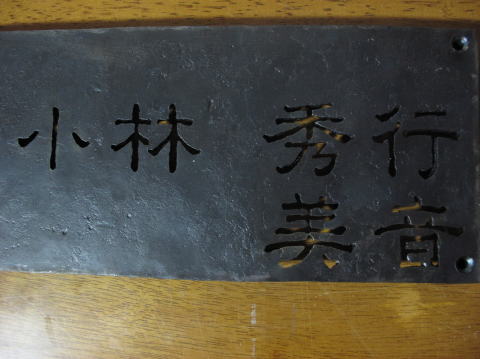 小林 秀行
美音